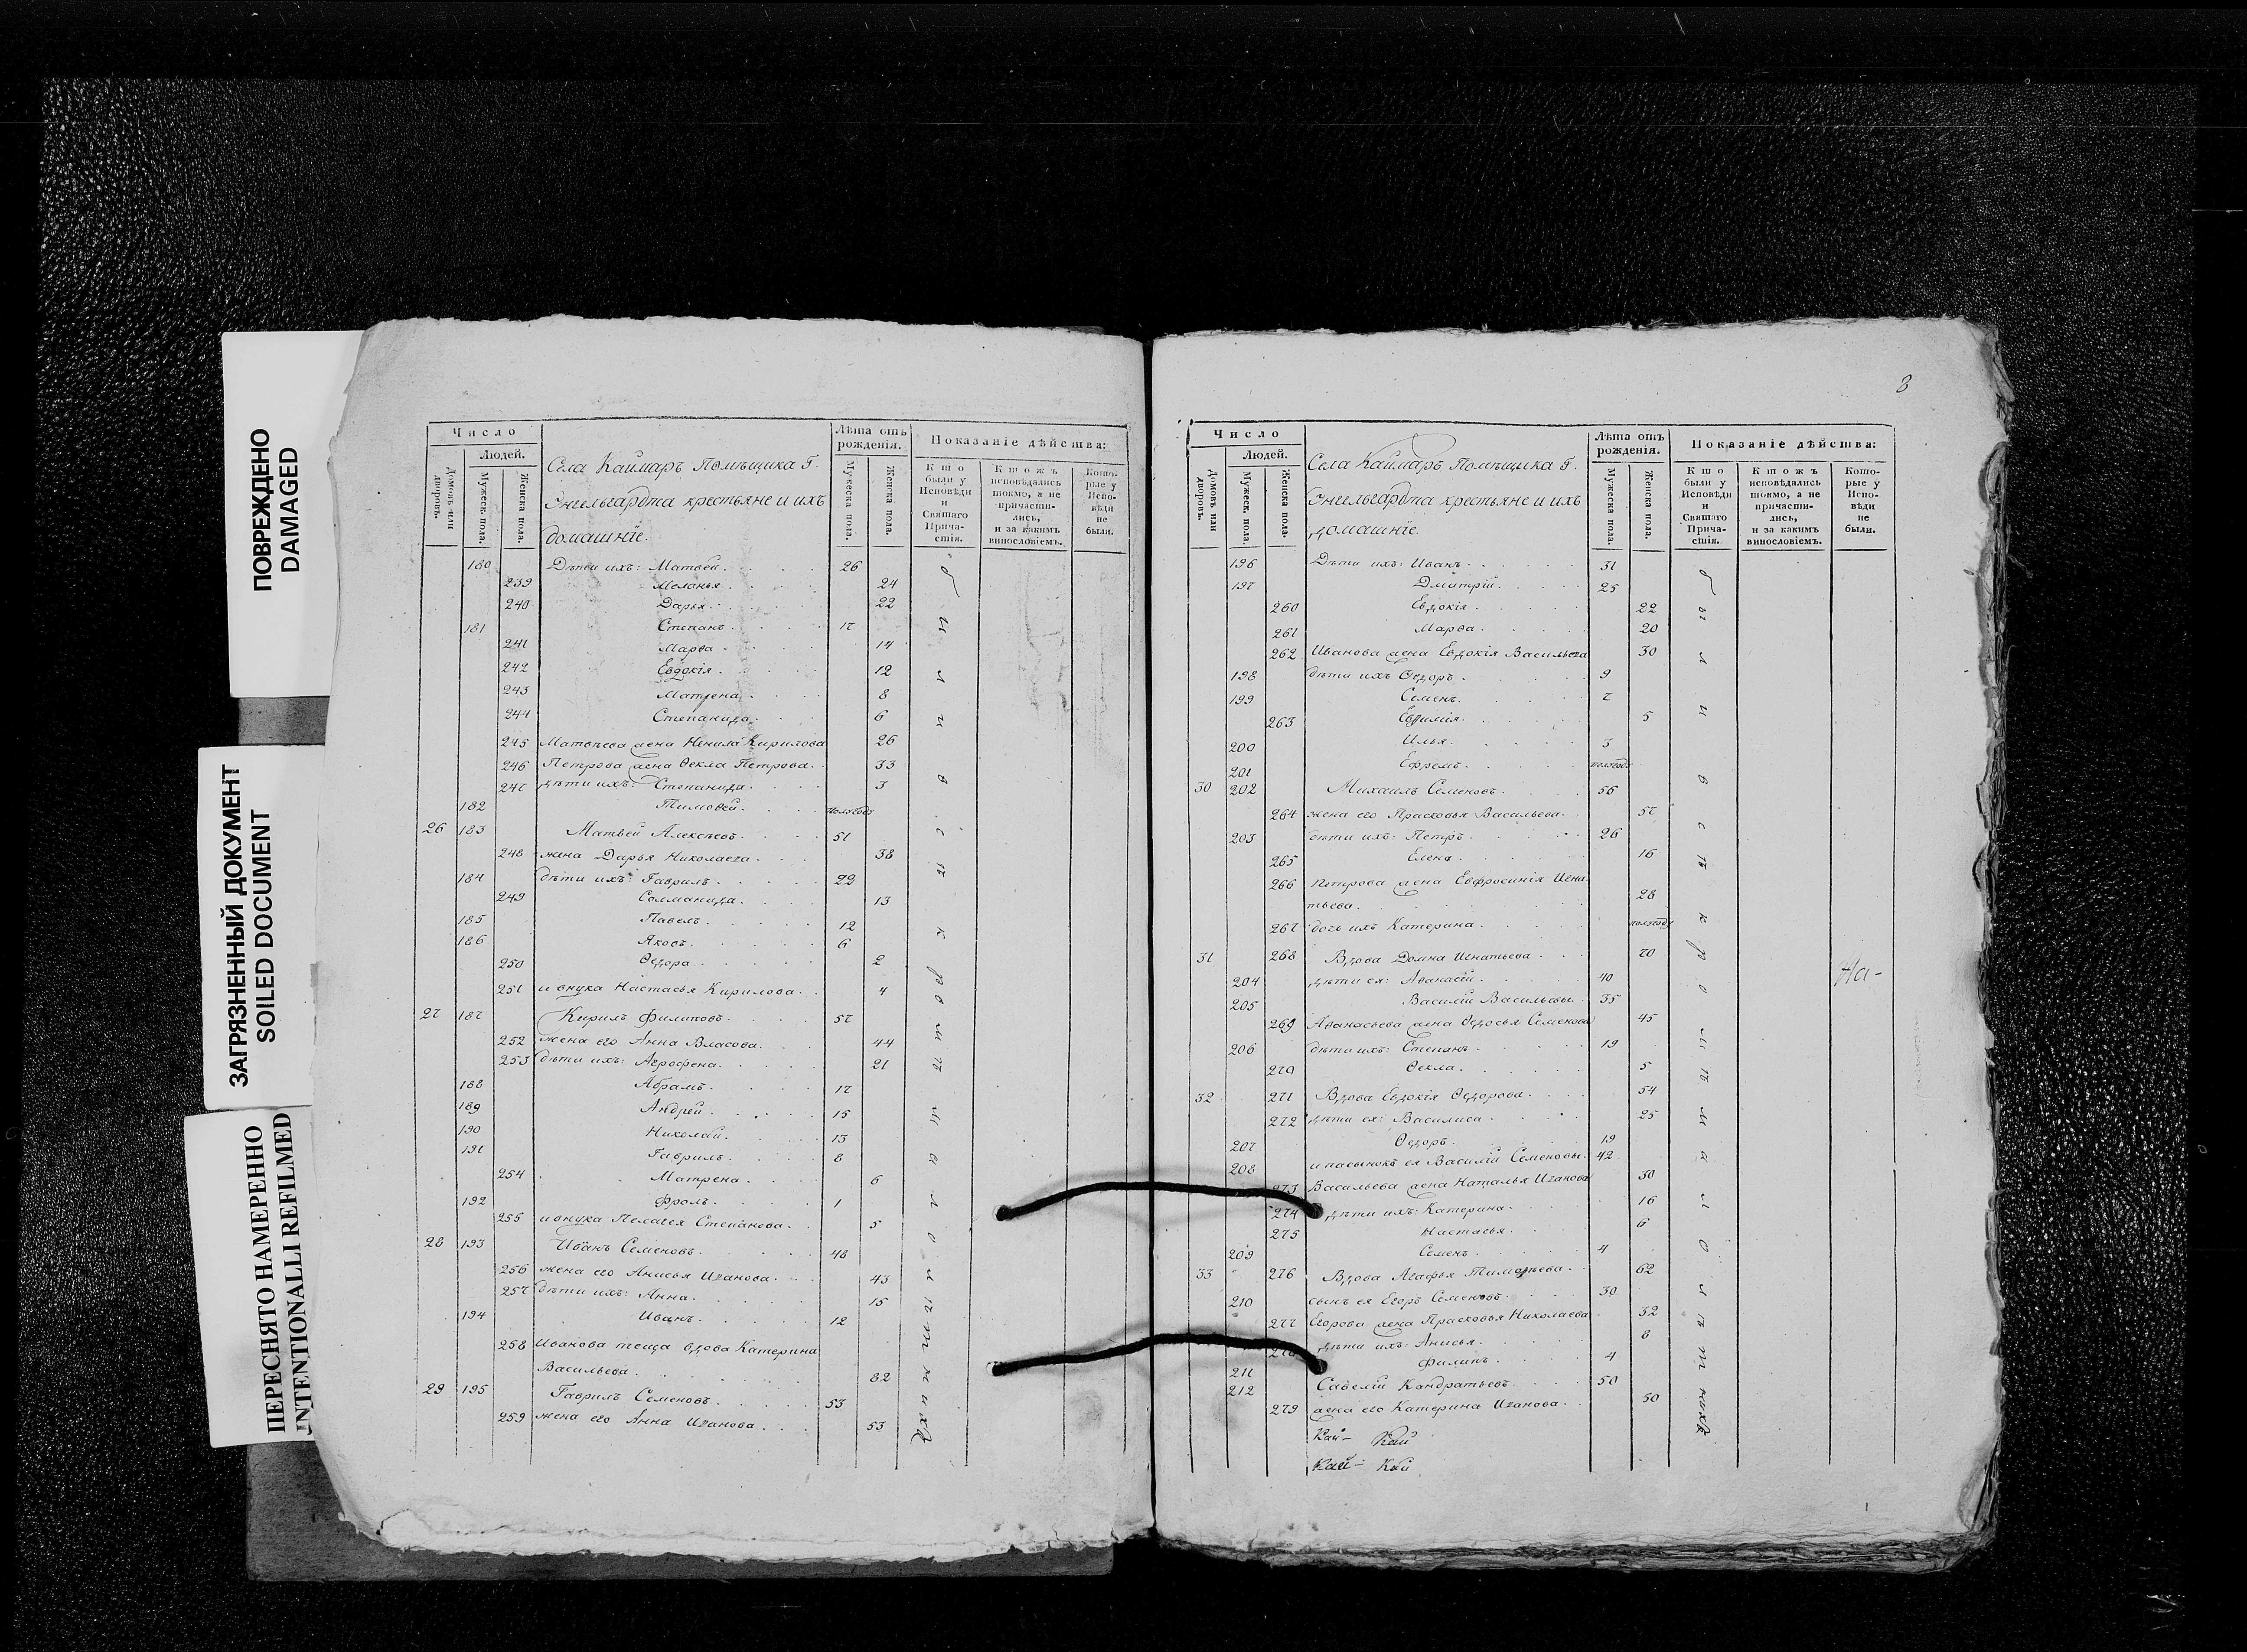 ПОВРЕЖДЕНО
DAMAGED
ЗАГРЯЗНЕННЫЙ ДОКУМЕНТ
SOILED DOCUMENT
ПЕРЕСНЯТО НАМЕРЕННО
INTENTIONALLI REFILMED
Число
Людей.
Домовъ или дворовъ.
Мужеск. пола.
Женска пола.
Села Каймаръ Помѣщика Г.
Энгельгардта крестьяне и ихъ
домашніе.
Лѣта отъ рожденія.
Мужеска пола.
Женска пола.
Показаніе дѣйства:
Кто были у Исповѣди и Святаго Прича-стія.
Ктожъ исповѣдались токмо, а не причасти-лись, и за какимъ винословіемъ.
Кото-рые у Испо-вѣди не были.
180 Дѣти ихъ: Матвей 26
239 Меланья 24
240 Дарья 22
181 Степанъ 17
241 Марѳа 14
242 Евдокія 12
243 Матрена 8
244 Степанида 6
245 Матвѣева жена Ненила Кирилова 26
246 Петрова жена Ѳекла Петрова 33
247 дѣти ихъ: Степанида 3
182 Тимоѳей полугода
26 183 Матвей Алексѣевъ 51
248 жена Дарья Николаева 38
184 дѣти ихъ: Гаврилъ 22
249 Соломанида 13
185 Павелъ 12
186 Яковъ 6
250 Ѳедора 2
251 и внука Настасья Кирилова 4
27 187 Кирилъ Филиповъ 57
252 жена его Анна Власова 44
253 дѣти ихъ: Агрофена 21
188 Абрамъ 17
189 Андрей 15
190 Николай 13
191 Гаврилъ 8
254 Матрена 6
192 Фролъ 1
255 и внука Пелагея Степанова 5
28 193 Иванъ Семеновъ 48
256 жена его Анисья Иванова 43
257 дѣти ихъ: Анна 15
194 Иванъ 12
258 Иванова теща вдова Катерина
Васильева 82
29 195 Гаврилъ Семеновъ 53
259 жена его Анна Иванова 53
8
Число
Людей.
Домовъ или дворовъ.
Мужеск. пола.
Женска пола.
Села Каймаръ Помѣщика Г.
Энгельгардта крестьяне и ихъ
домашніе.
Лѣта отъ рожденія.
Мужеска пола.
Женска пола.
Показаніе дѣйства:
Кто были у Исповѣди и Святаго Прича-стія.
Ктожъ исповѣдались токмо, а не причасти-лись, и за какимъ винословіемъ.
Кото-рые у Испо-вѣди не были.
196 Дѣти ихъ: Иванъ 31
197 Дмитрій 25
260 Евдокія 22
261 Марѳа 20
262 Иванова жена Евдокія Васильева 30
198 дѣти ихъ Ѳедоръ 9
199 Семенъ 7
263 Евѳимія 5
200 Илья 3
201 Ефремъ полугода
30 202 Михаилъ Семеновъ 56
264 жена его Прасковья Васильева 57
203 дѣти ихъ: Петръ 26
265 Елена 16
266 Петрова жена Евфросинія Игна-
тьева 28
267 дочь ихъ Катерина полугоду
31 268 Вдова Домна Игнатьева 70
204 дѣти ея: Аѳанасій 40
205 Василій Васильевы 35
269 Аѳанасьева жена Ѳедосья Семенова 45
206 дѣти ихъ: Степанъ 19
270 Ѳекла 5
32 271 Вдова Евдокія Ѳедорова 54
272 дѣти ея: Василиса 25
207 Ѳедоръ 19
208 и пасынокъ ея Василій Семеновы 42
273 Васильева жена Наталья Иванова 30
274 дѣти ихъ: Катерина 16
275 Настасья 6
209 Семенъ 4
33 276 Вдова Агафья Тимоѳеева 62
210 сынъ ея Егоръ Семеновъ 30
277 Егорова жена Прасковья Николаева 32
дѣти ихъ: Анисья 8
211 Филипъ 4
212 Савелій Кондратьевъ 50
279 жена его Катерина Иванова 50
Кай- Кай
Кай- Кай
На-